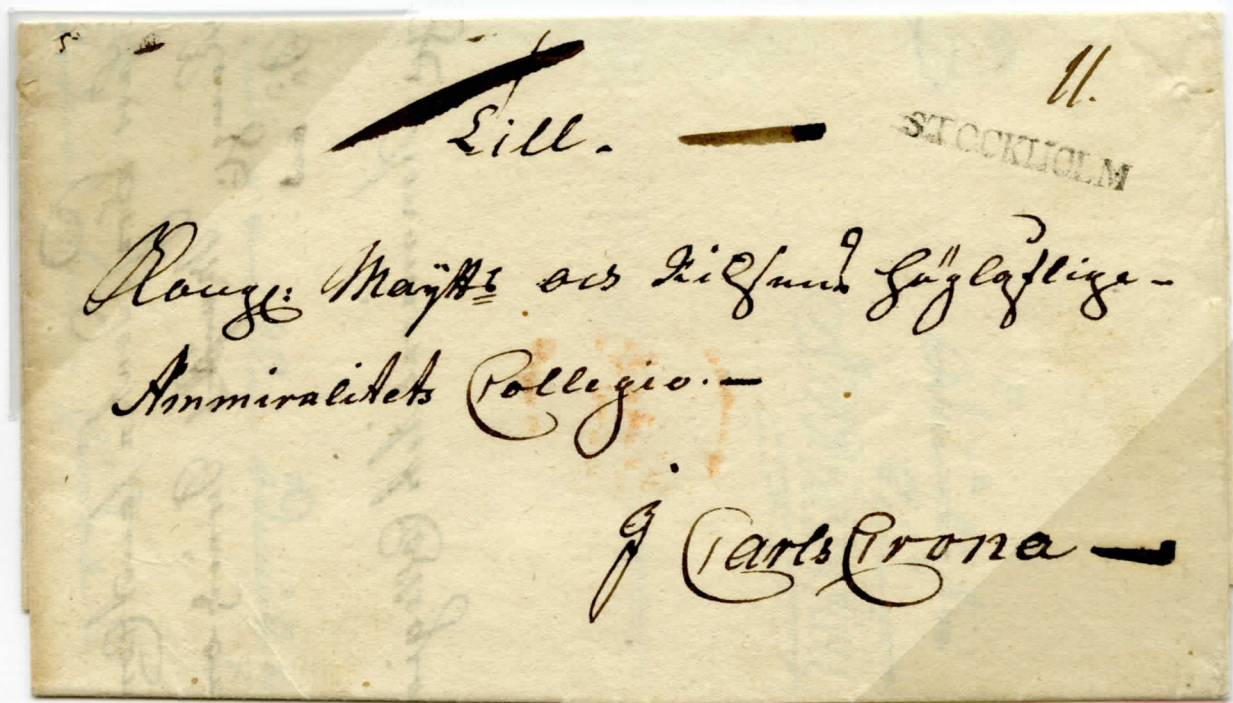 11.
Till.
STOCKHOLM
Kongl: Maÿtts och Riksens Högloflige
Ammiralitets Collegio.
J Carls Crona